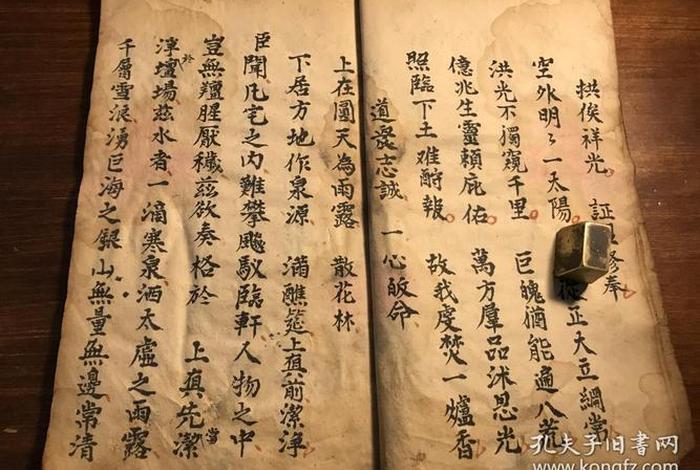 拱俟祥光。 証修奉
空外明々一太陽。 正大立綱常
洪光不獨窺千里。 巨魄猶能遍八荒
億兆生靈賴庇佑。 萬方羣品沐恩光
照臨下土难酧報。 故我虔焚一爐香
道眾志誠 一心皈命
上在圓天為雨露 散花林
下居方地作泉源 滿醮筵上真前潔淨
臣聞凡宅之内難攀飈馭臨軒人物之中
豈無羶腥厭穢茲欲奏格於 上真先當潔
淨於壇場茲水者一滴寒泉洒太虛之雨露
千層雪浪湧巨海之銀山無量無邊常清
孔夫子旧書网
www.kongfz.com